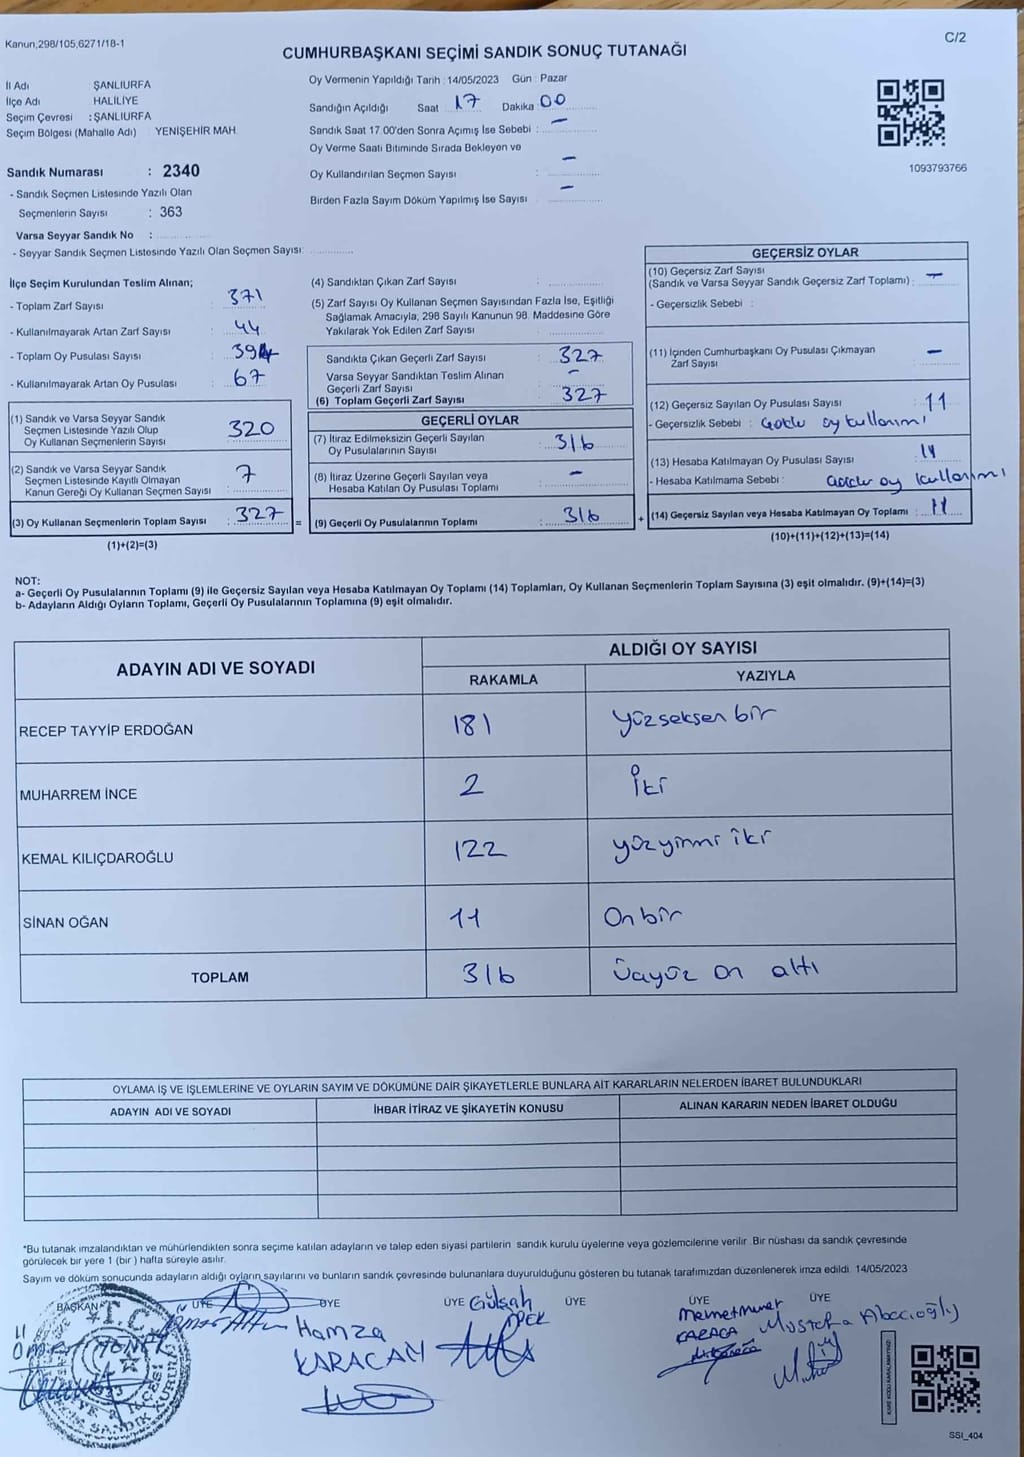 Kanun,298/105,6271/18-1
C/2
CUMHURBAŞKANI SEÇİMİ SANDIK SONUÇ TUTANAĞI
İl Adı ŞANLIURFA
İlçe Adı HALİLİYE
Seçim Çevresi : ŞANLIURFA
Seçim Bölgesi (Mahalle Adı) YENİŞEHİR MAH.
Sandık Numarası : 2340
- Sandık Seçmen Listesinde Yazılı Olan
Seçmenlerin Sayısı : 363
Varsa Seyyar Sandık No :
- Seyyar Sandık Seçmen Listesinde Yazılı Olan Seçmen Sayısı:
Oy Vermenin Yapıldığı Tarih : 14/05/2023 Gün : Pazar
Sandığın Açıldığı Saat 17 Dakika 00
Sandık Saat 17.00'den Sonra Açımış İse Sebebi : -
Oy Verme Saati Bitiminde Sırada Bekleyen ve
Oy Kullandırılan Seçmen Sayısı : -
Birden Fazla Sayım Döküm Yapılmış İse Sayısı -
1093793766
İlçe Seçim Kurulundan Teslim Alınan;
- Toplam Zarf Sayısı : 371
- Kullanılmayarak Artan Zarf Sayısı : 44
- Toplam Oy Pusulası Sayısı : 394
- Kullanılmayarak Artan Oy Pusulası : 67
(1) Sandık ve Varsa Seyyar Sandık
Seçmen Listesinde Yazılı Olup
Oy Kullanan Seçmenlerin Sayısı : 320
(2) Sandık ve Varsa Seyyar Sandık
Seçmen Listesinde Kayıtlı Olmayan
Kanun Gereği Oy Kullanan Seçmen Sayısı : 7
(3) Oy Kullanan Seçmenlerin Toplam Sayısı : 327
(1)+(2)=(3)
=
(4) Sandıktan Çıkan Zarf Sayısı :
(5) Zarf Sayısı Oy Kullanan Seçmen Sayısından Fazla İse, Eşitliği
Sağlamak Amacıyla, 298 Sayılı Kanunun 98. Maddesine Göre
Yakılarak Yok Edilen Zarf Sayısı :
Sandıkta Çıkan Geçerli Zarf Sayısı : 327
Varsa Seyyar Sandıktan Teslim Alınan
Geçerli Zarf Sayısı : -
(6) Toplam Geçerli Zarf Sayısı : 327
GEÇERLİ OYLAR
(7) İtiraz Edilmeksizin Geçerli Sayılan
Oy Pusulalarının Sayısı : 316
(8) İtiraz Üzerine Geçerli Sayılan veya
Hesaba Katılan Oy Pusulası Toplamı : -
(9) Geçerli Oy Pusulalarının Toplamı : 316
+
GEÇERSİZ OYLAR
(10) Geçersiz Zarf Sayısı
(Sandık ve Varsa Seyyar Sandık Geçersiz Zarf Toplamı) : -
- Geçersizlik Sebebi :
(11) İçinden Cumhurbaşkanı Oy Pusulası Çıkmayan
Zarf Sayısı : -
(12) Geçersiz Sayılan Oy Pusulası Sayısı : 11
- Geçersizlik Sebebi : oy kullanımı
(13) Hesaba Katılmayan Oy Pusulası Sayısı : 11
- Hesaba Katılmama Sebebi : oy kullanımı
(14) Geçersiz Sayılan veya Hesaba Katılmayan Oy Toplamı : 11
(10)+(11)+(12)+(13)=(14)
NOT:
a- Geçerli Oy Pusulalarının Toplamı (9) ile Geçersiz Sayılan veya Hesaba Katılmayan Oy Toplamı (14) Toplamları, Oy Kullanan Seçmenlerin Toplam Sayısına (3) eşit olmalıdır. (9)+(14)=(3)
b- Adayların Aldığı Oyların Toplamı, Geçerli Oy Pusulalarının Toplamına (9) eşit olmalıdır.
ADAYIN ADI VE SOYADI
ALDIĞI OY SAYISI
RAKAMLA YAZIYLA
RECEP TAYYİP ERDOĞAN 181 Yüzseksen bir
MUHARREM İNCE 2 İki
KEMAL KILIÇDAROĞLU 122 yüzyirmi iki
SİNAN OĞAN 11 On bir
TOPLAM 316 Üçyüz on altı
OYLAMA İŞ VE İŞLEMLERİNE VE OYLARIN SAYIM VE DÖKÜMÜNE DAİR ŞİKAYETLERLE BUNLARA AİT KARARLARIN NELERDEN İBARET BULUNDUKLARI
ADAYIN ADI VE SOYADI İHBAR İTİRAZ VE ŞİKAYETİN KONUSU ALINAN KARARIN NEDEN İBARET OLDUĞU
*Bu tutanak imzalandıktan ve mühürlendikten sonra seçime katılan adayların ve talep eden siyasi partilerin sandık kurulu üyelerine veya gözlemcilerine verilir. Bir nüshası da sandık çevresinde
görülecek bir yere 1 (bir ) hafta süreyle asılır.
Sayım ve döküm sonucunda adayların aldığı oyların sayılarını ve bunların sandık çevresinde bulunanlara duyurulduğunu gösteren bu tutanak tarafımızdan düzenlenerek imza edildi. 14/05/2023
BAŞKAN ÜYE ÜYE ÜYE ÜYE ÜYE ÜYE
T.C.
Hamza
KARACAN
Gülşah
İPEK
Memetmunet
KARACA
Mustafa Abacıoğlu
SSI_404